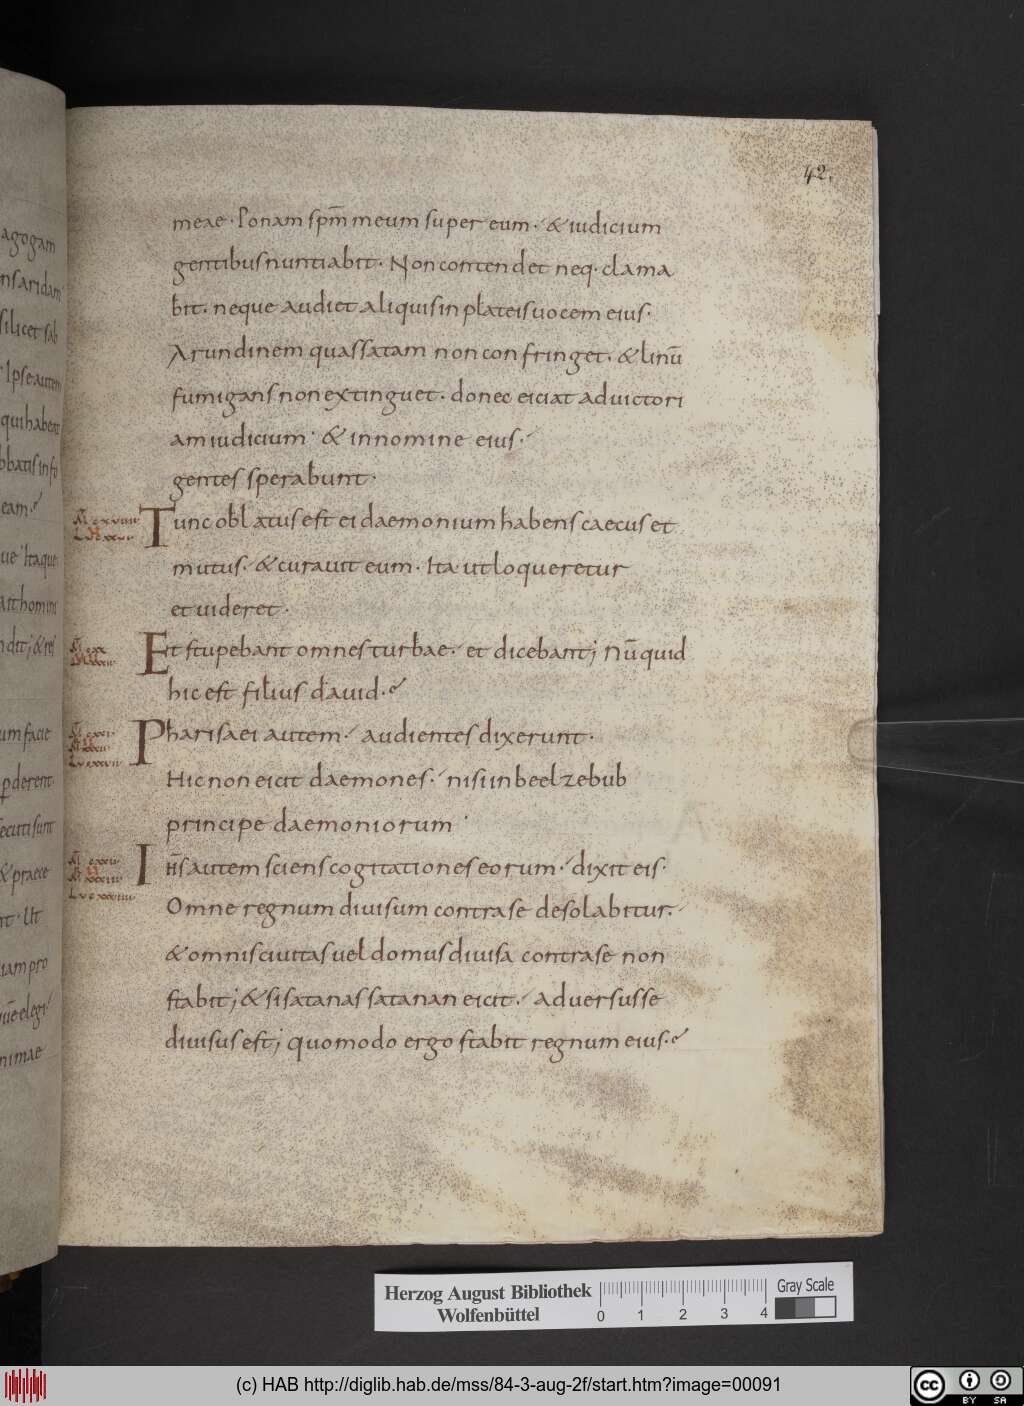 42.
meae · Ponam sp̄m meum super eum · & iudicium
gentibus nuntiabit · Non contendet neq · clama
bit · neque audiet aliquis in plateis uocem eius ·
Arundinem quassatam non confringet · & linū
fumigans non extinguet · donec eiciat ad uictori
am iudicium · & in nomine eius ·
gentes sperabunt ·
Tunc oblatus est ei daemonium habens caecus et
mutus · & curauit eum · Ita ut loqueretur
et uideret ·
Et stupebant omnes turbae · et dicebant; Nūquid
hic est filius dauid ·
Pharisaei autem · audientes dixerunt ·
Hic non eicit daemones · nisi in beelzebub
principe daemoniorum ·
Ihs̄ autem sciens cogitationes eorum · dixit eis ·
Omne regnum diuisum contra se desolabitur ·
& omnis ciuitas uel domus diuisa contra se non
stabit; & si satanas satanan eicit · aduersus se
diuisus est; quomodo ergo stabit regnum eius ·
agogam
silicet sab
Ipse autem
qui habent
bbatis in fo
eam ·
ue · Itaque
um facie
perderent
secuti sunt
& praece
nt · Ut
iam pro
elegi
nimae
Herzog August Bibliothek
Wolfenbüttel
0 1 2 3 4
Gray Scale
(c) HAB http://diglib.hab.de/mss/84-3-aug-2f/start.htm?image=00091
cc BY SA